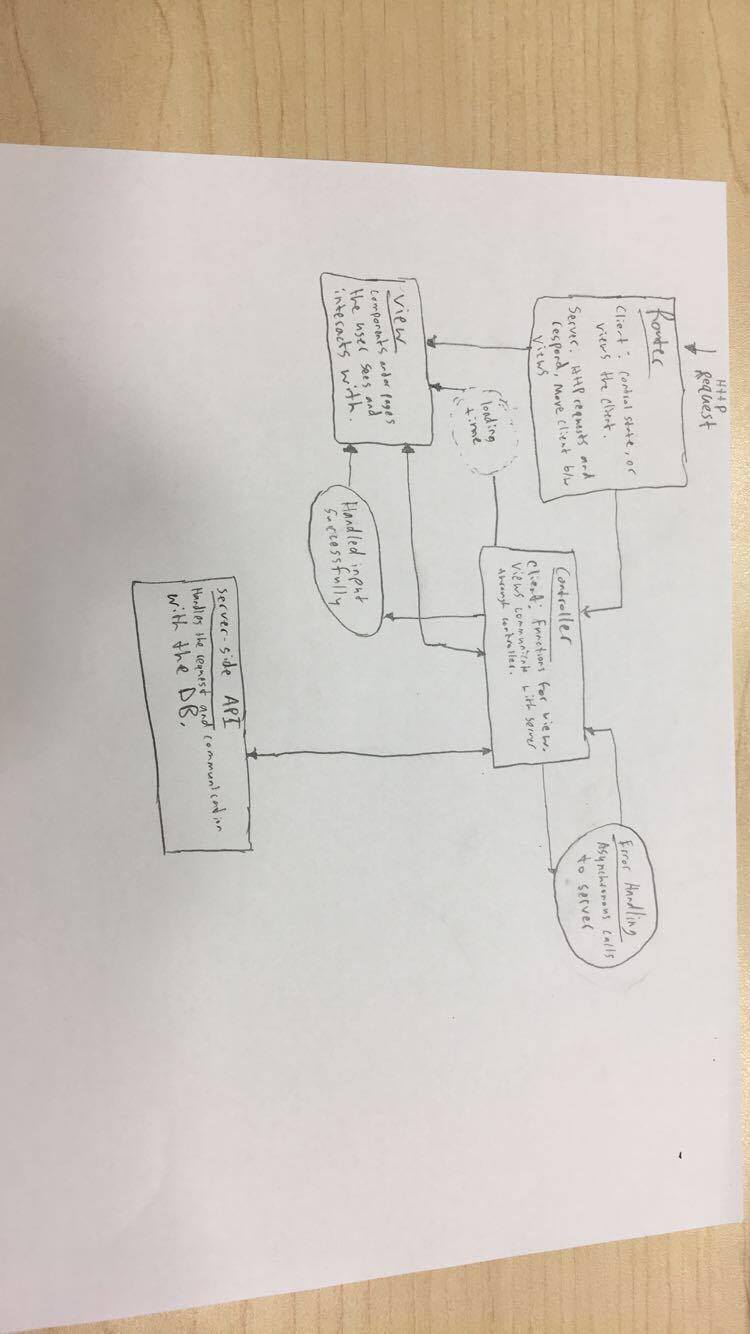 HTTP
Request
Router
Client: Control state, or
views the client.
Server: HTTP requests and
respond, Move client b/w
views
Error Handling
Asynchronous calls
to server
Controller
Client: Functions for view.
Views communicate with server
through controller.
loading
time
View
Components and/or pages
the user sees and
interacts with.
Handled input
successfully
Server-side API
Handles the request and communication
with the DB.